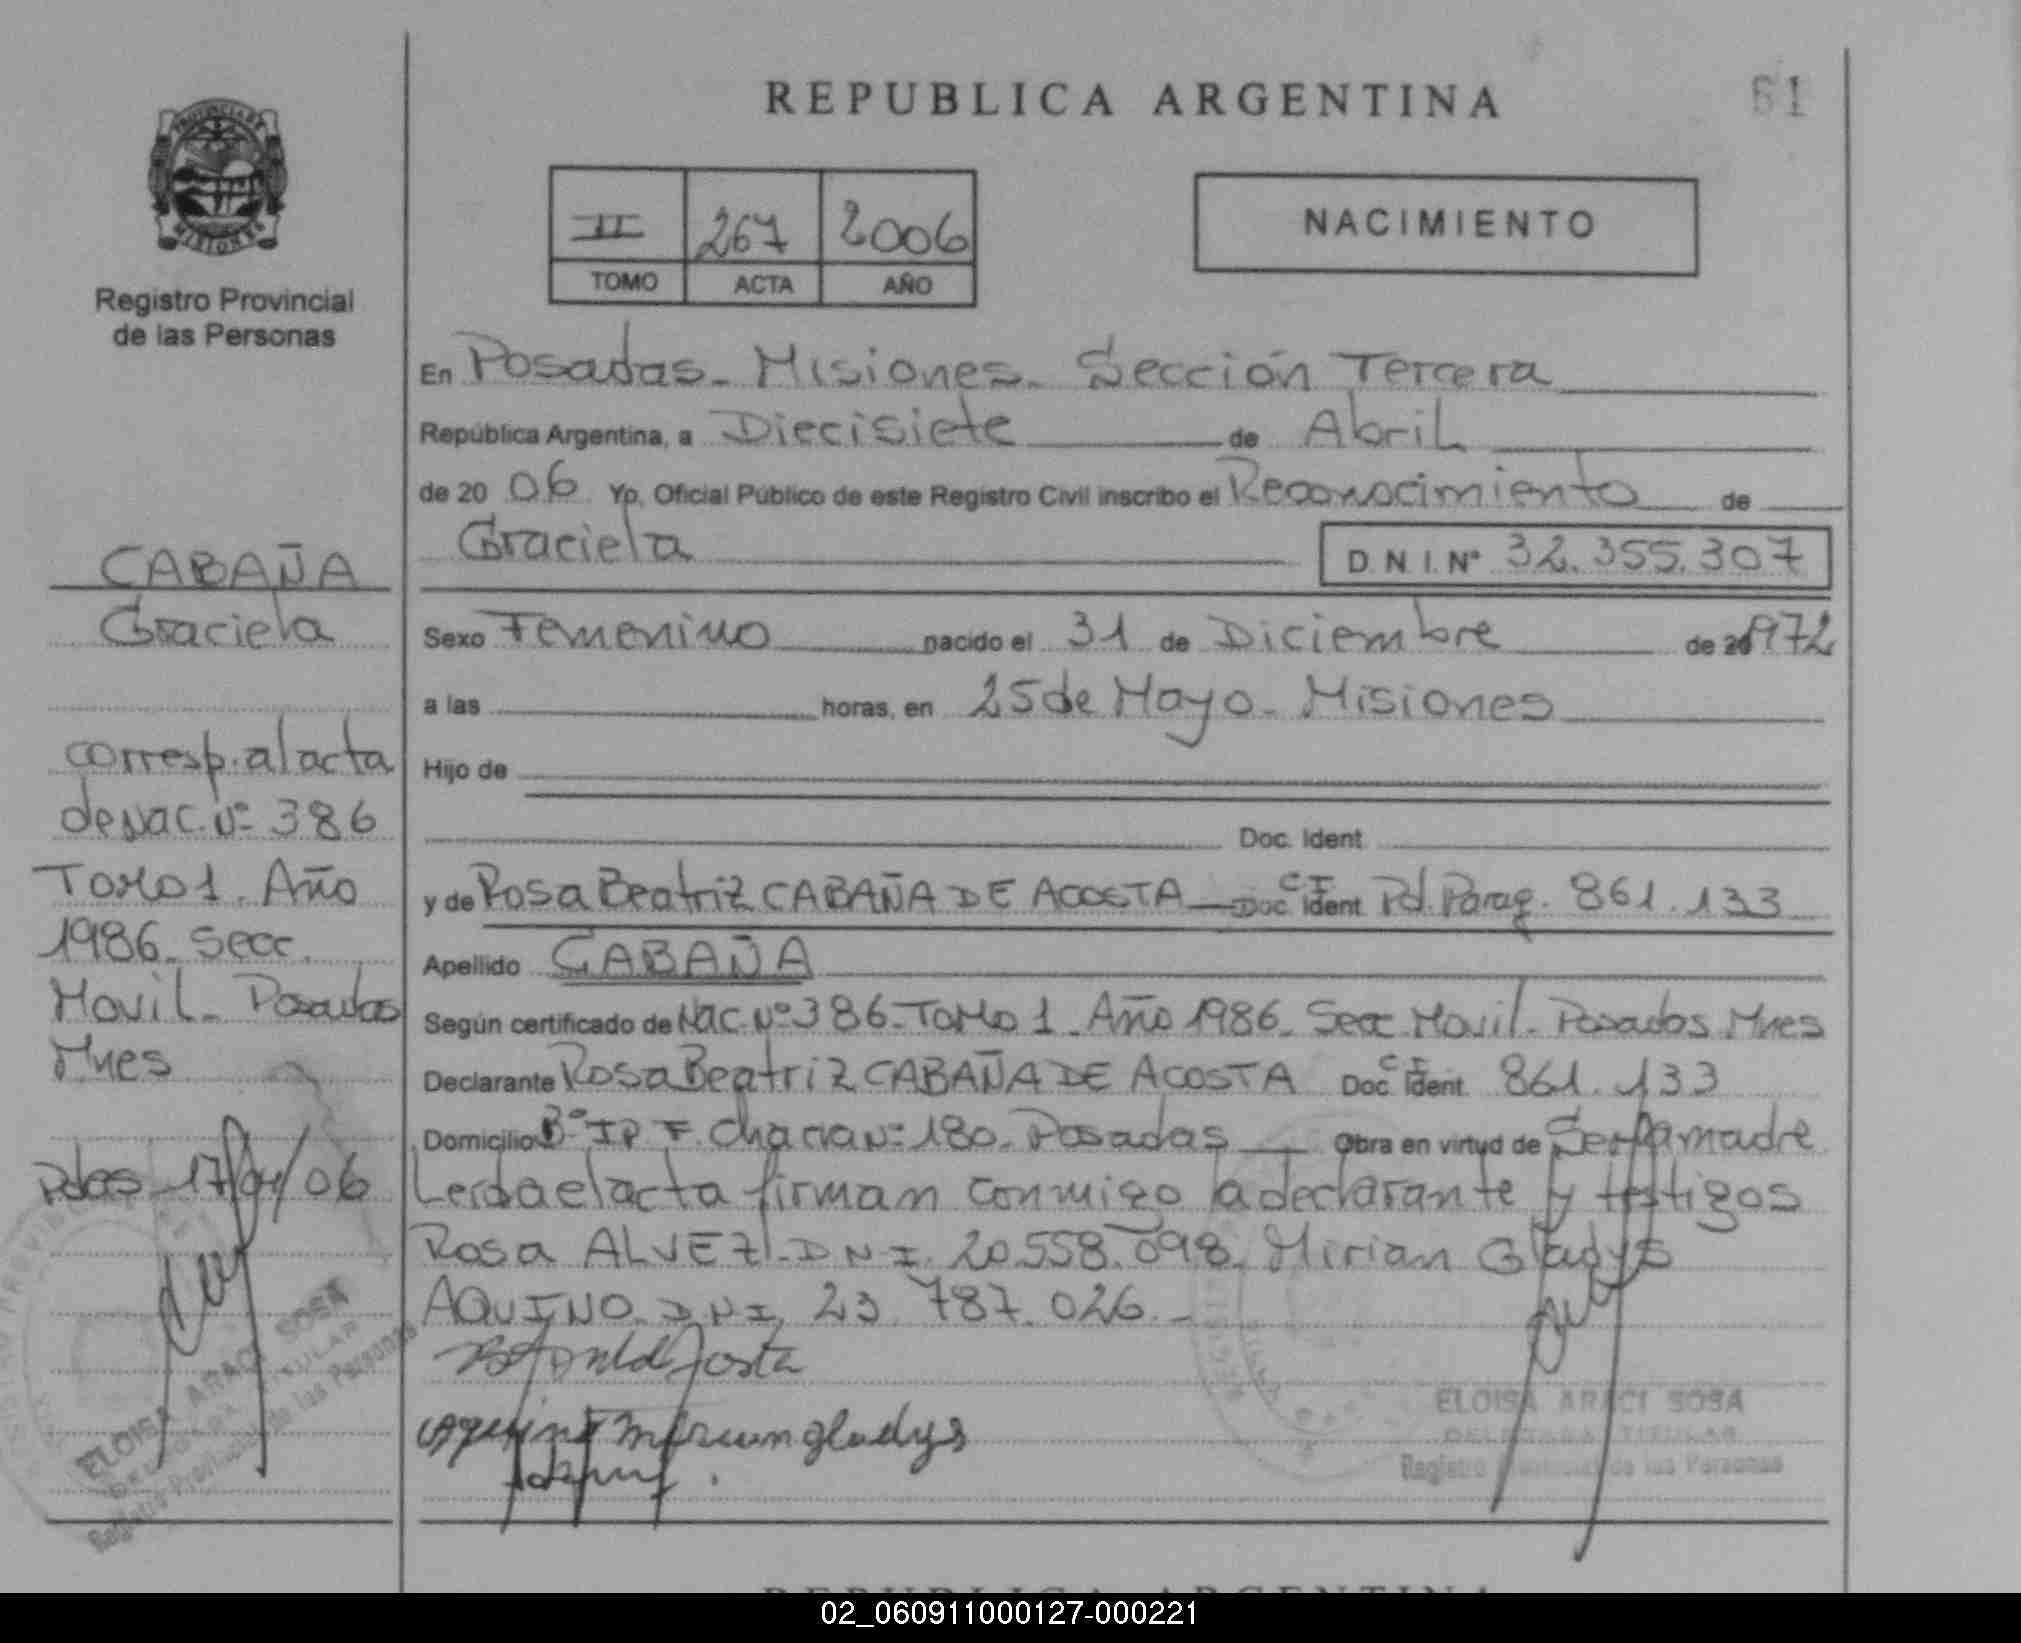 REPUBLICA ARGENTINA
61
PROVINCIA DE
MISIONES
Registro Provincial
de las Personas
II 267 2006
TOMO ACTA AÑO
NACIMIENTO
En Posadas - Misiones - Sección Tercera
República Argentina, a Diecisiete de Abril
de 20 06 Yo, Oficial Público de este Registro Civil inscribo el Reconocimiento de
Graciela D.N.I. Nº 32.355.307
Sexo Femenino nacido el 31 de Diciembre de 1972
a las horas, en 25 de Mayo - Misiones
Hijo de
Doc. Ident
y de Rosa Beatriz CABAÑA DE ACOSTA Doc. Ident C I Pol. Parag. 861.133
Apellido CABAÑA
Según certificado de Nac. Nº 386 - Tomo 1 - Año 1986 - Secc. Movil - Posados Mnes
Declarante Rosa Beatriz CABAÑA DE ACOSTA Doc. Ident. C I 861.133
Domicilio Bº I P F. Chacra Nº 180 - Posadas Obra en virtud de Ser la madre
Leida el acta firman conmigo la declarante y testigos
Rosa ALVEZ - D N I. 20.558.098. Mirian Gladys
AQUINO - D N I. 23.787.026.-
Aquino Mirian gladys
CABAÑA
Graciela
corresp. al acta
de Nac. Nº 386
Tomo 1. Año
1986 - Secc.
Movil - Posadas
Mnes
Pdas 17/04/06
ELOISA ARACI SOSA
DELEGADA TITULAR
Registro Provincial de las Personas
ELOISA ARACI SOSA
DELEGADA TITULAR
Registro Provincial de las Personas
REPUBLICA ARGENTINA
02_060911000127-000221